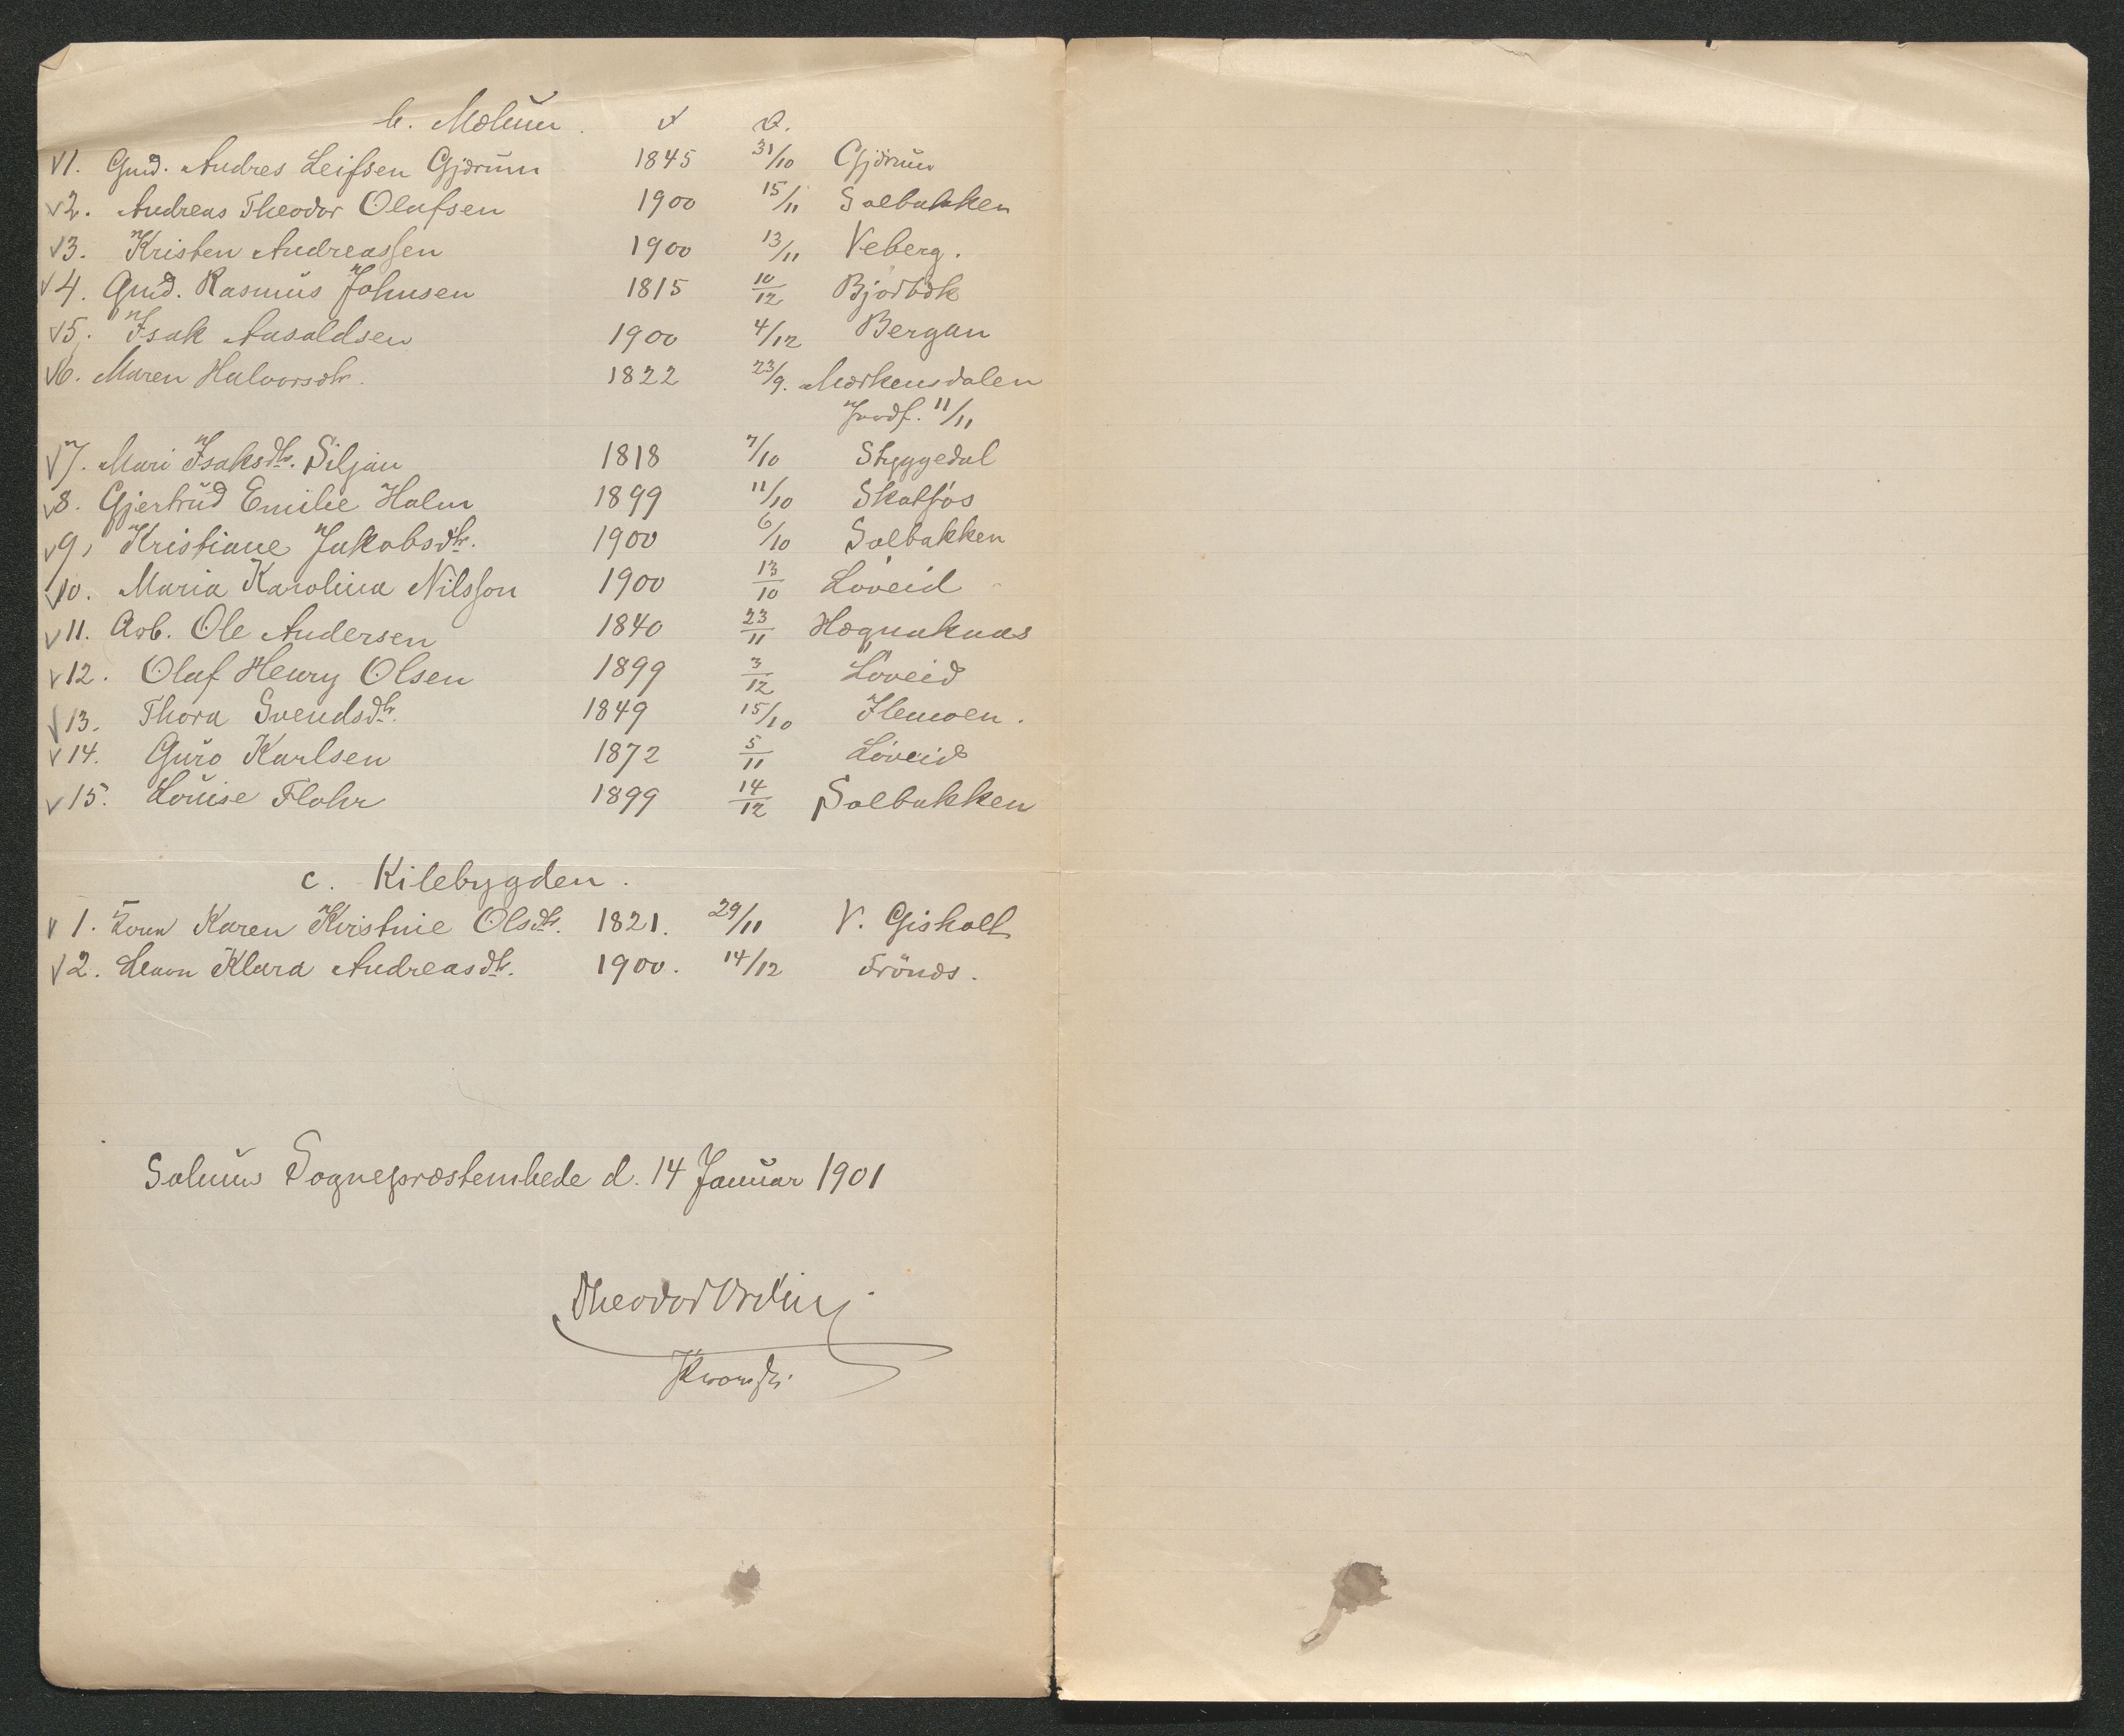 b. Mælum. f d.
√1. Gmd. Andres Leifsen Gjærum 1845 31/10 Gjærum
√2. Andreas Theodor Olafsen 1900 15/11 Solbakken
√3. Kristen Andreassen 1900 13/11 Veberg.
√4. Gmd. Rasmus Johnsen 1815 10/12 Bjørbæk
√5. Isak Aasoldsen 1900 4/12 Bergan
√6. Maren Halvorsdtr. 1822 23/9. Mærkensdalen
Jordf. 11/11
√7. Mari Isaksdtr. Siljan 1818 7/10 Styggedal
√8. Gjertrud Emilie Holm 1899 11/10 Skotfos
√9, Kristiane Jakobsdtr. 1900 6/10 Solbakken
√10. Maria Karolina Nilsson 1900 13/10 Löveid
√11. Arb. Ole Andersen 1840 23/11 Hægnaknas
√12. Olaf Henry Olsen 1899 3/12 Löveid
√13. Thora Svendsdtr. 1849 15/10 Ilemoen.
√14. Guro Karlsen 1872 5/11 Löveid
√15. Louise Flohr 1899 14/12 Solbakken
c. Kilebygden.
√1. Karen Kristine Olsdtr. 1821. 29/11 V. Gisholt
√2. Klara Andreasdtr. 1900. 14/12 Trönæs.
Solum Sogneprestembede d. 14 Januar 1901
Theodor Ording